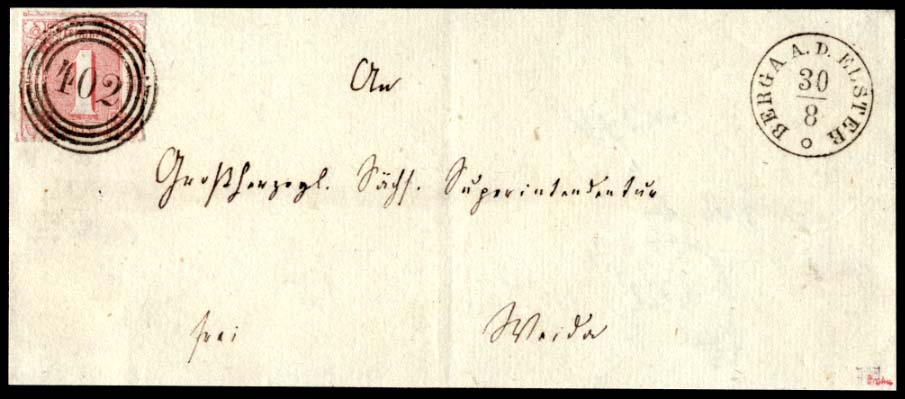 1
402
BERGA A. D. ELSTER
30
8
An
Großherzogl. Sächs. Superintendentur
frei Weida